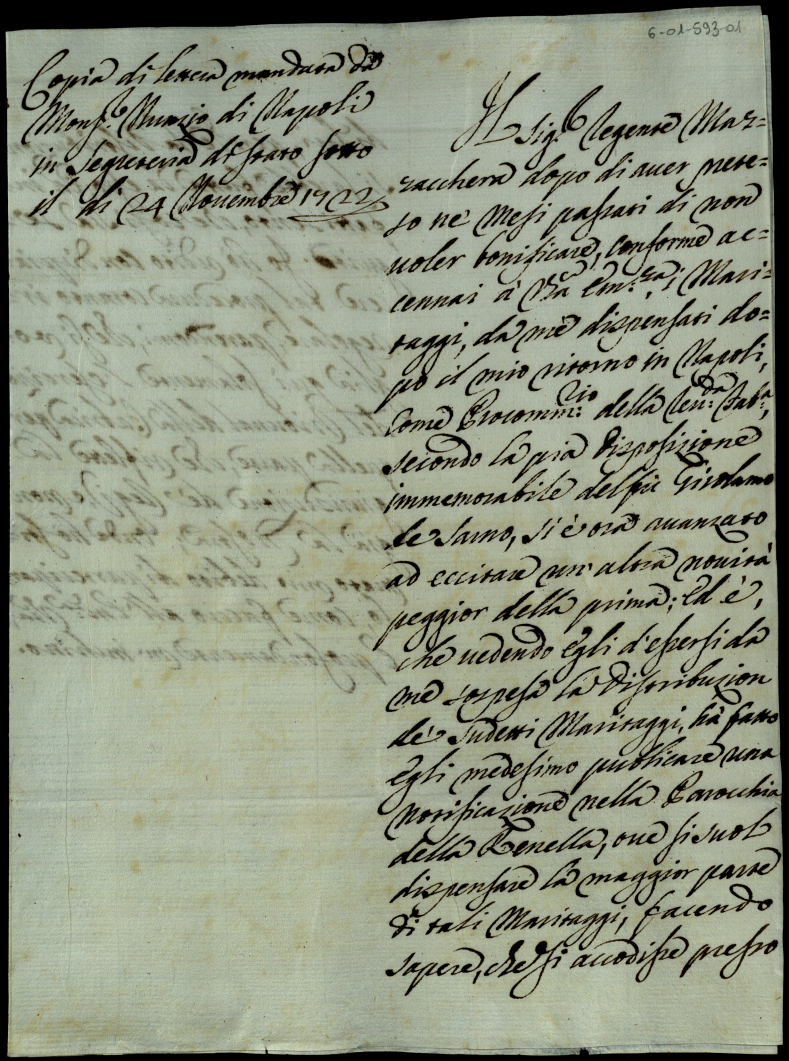 6-01-593-01
Copia di lettera mandata da
Monsr. Nunzio di Napoli
in Segreteria di Stato sotto
il di 24 Novembre 1722
Il Sigr. Regente Maz=
zacchera dopo di aver prete=
so ne' Mesi passati di non
voler bonificare, conforme ac=
cennai à Vra. Em.za, i Mari=
taggi, da me dispensati do=
po il mio ritorno in Napoli,
come Procomm.rio della Reu.da Fab.a,
secondo la pia disposizione
immemorabile del fù Girolamo
de Sarno, si è ora avanzato
ad eccitare un'altra novità
peggior della prima; Ed è,
che vedendo Egli d'essersi da
me sospesa la distribuzion
de' sudetti Maritaggi, hà fatto
Egli medesimo publicare una
notificazione nella Parocchia
della Renella, ove si suol
dispensare la maggior parte
di tali Maritaggi, facendo
sapere, che si accodisse presso